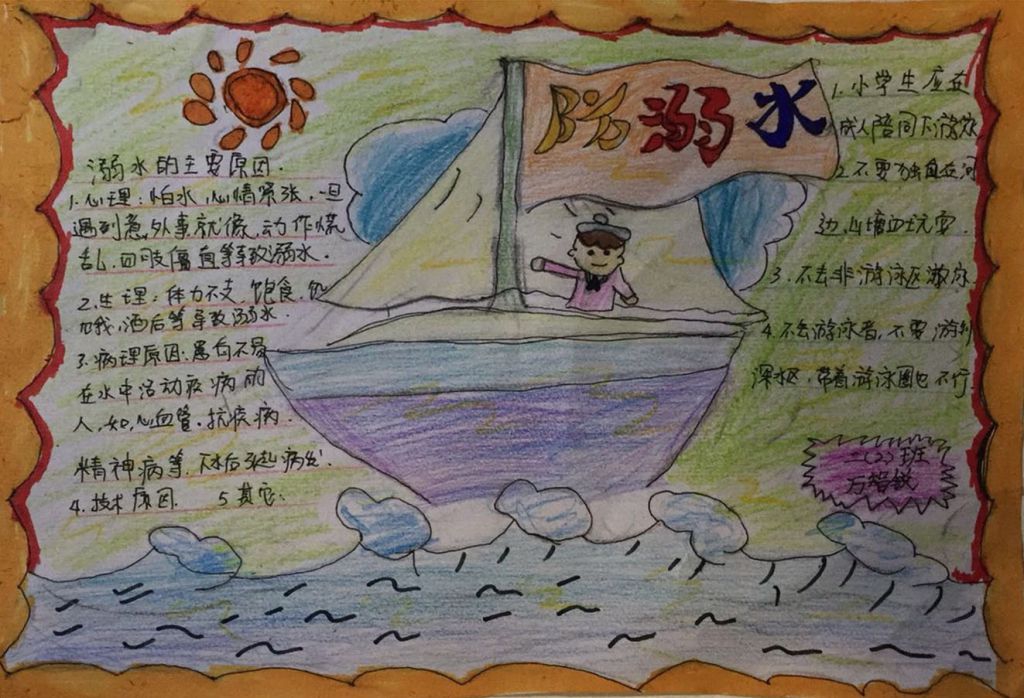 防溺水
溺水的主要原因.
1.心理:怕水,心情紧张,一旦
遇到意外事就慌,动作慌
乱,四肢僵直等导致溺水.
2.生理:体力不支,饱食,饥
饿,酒后等导致溺水.
3.病理原因:患有不易
在水中活动疾病的
人,如,心血管.抗疾病
精神病等,下水后引起病发.
4.技术原因. 5其它.
1.小学生应在
成人陪同下游泳
2.不要独自在河
边,山塘四玩耍.
3.不去非游泳区游泳.
4.不会游泳者,不要游到
深水区,带着游泳圈也不行.
二(2)班